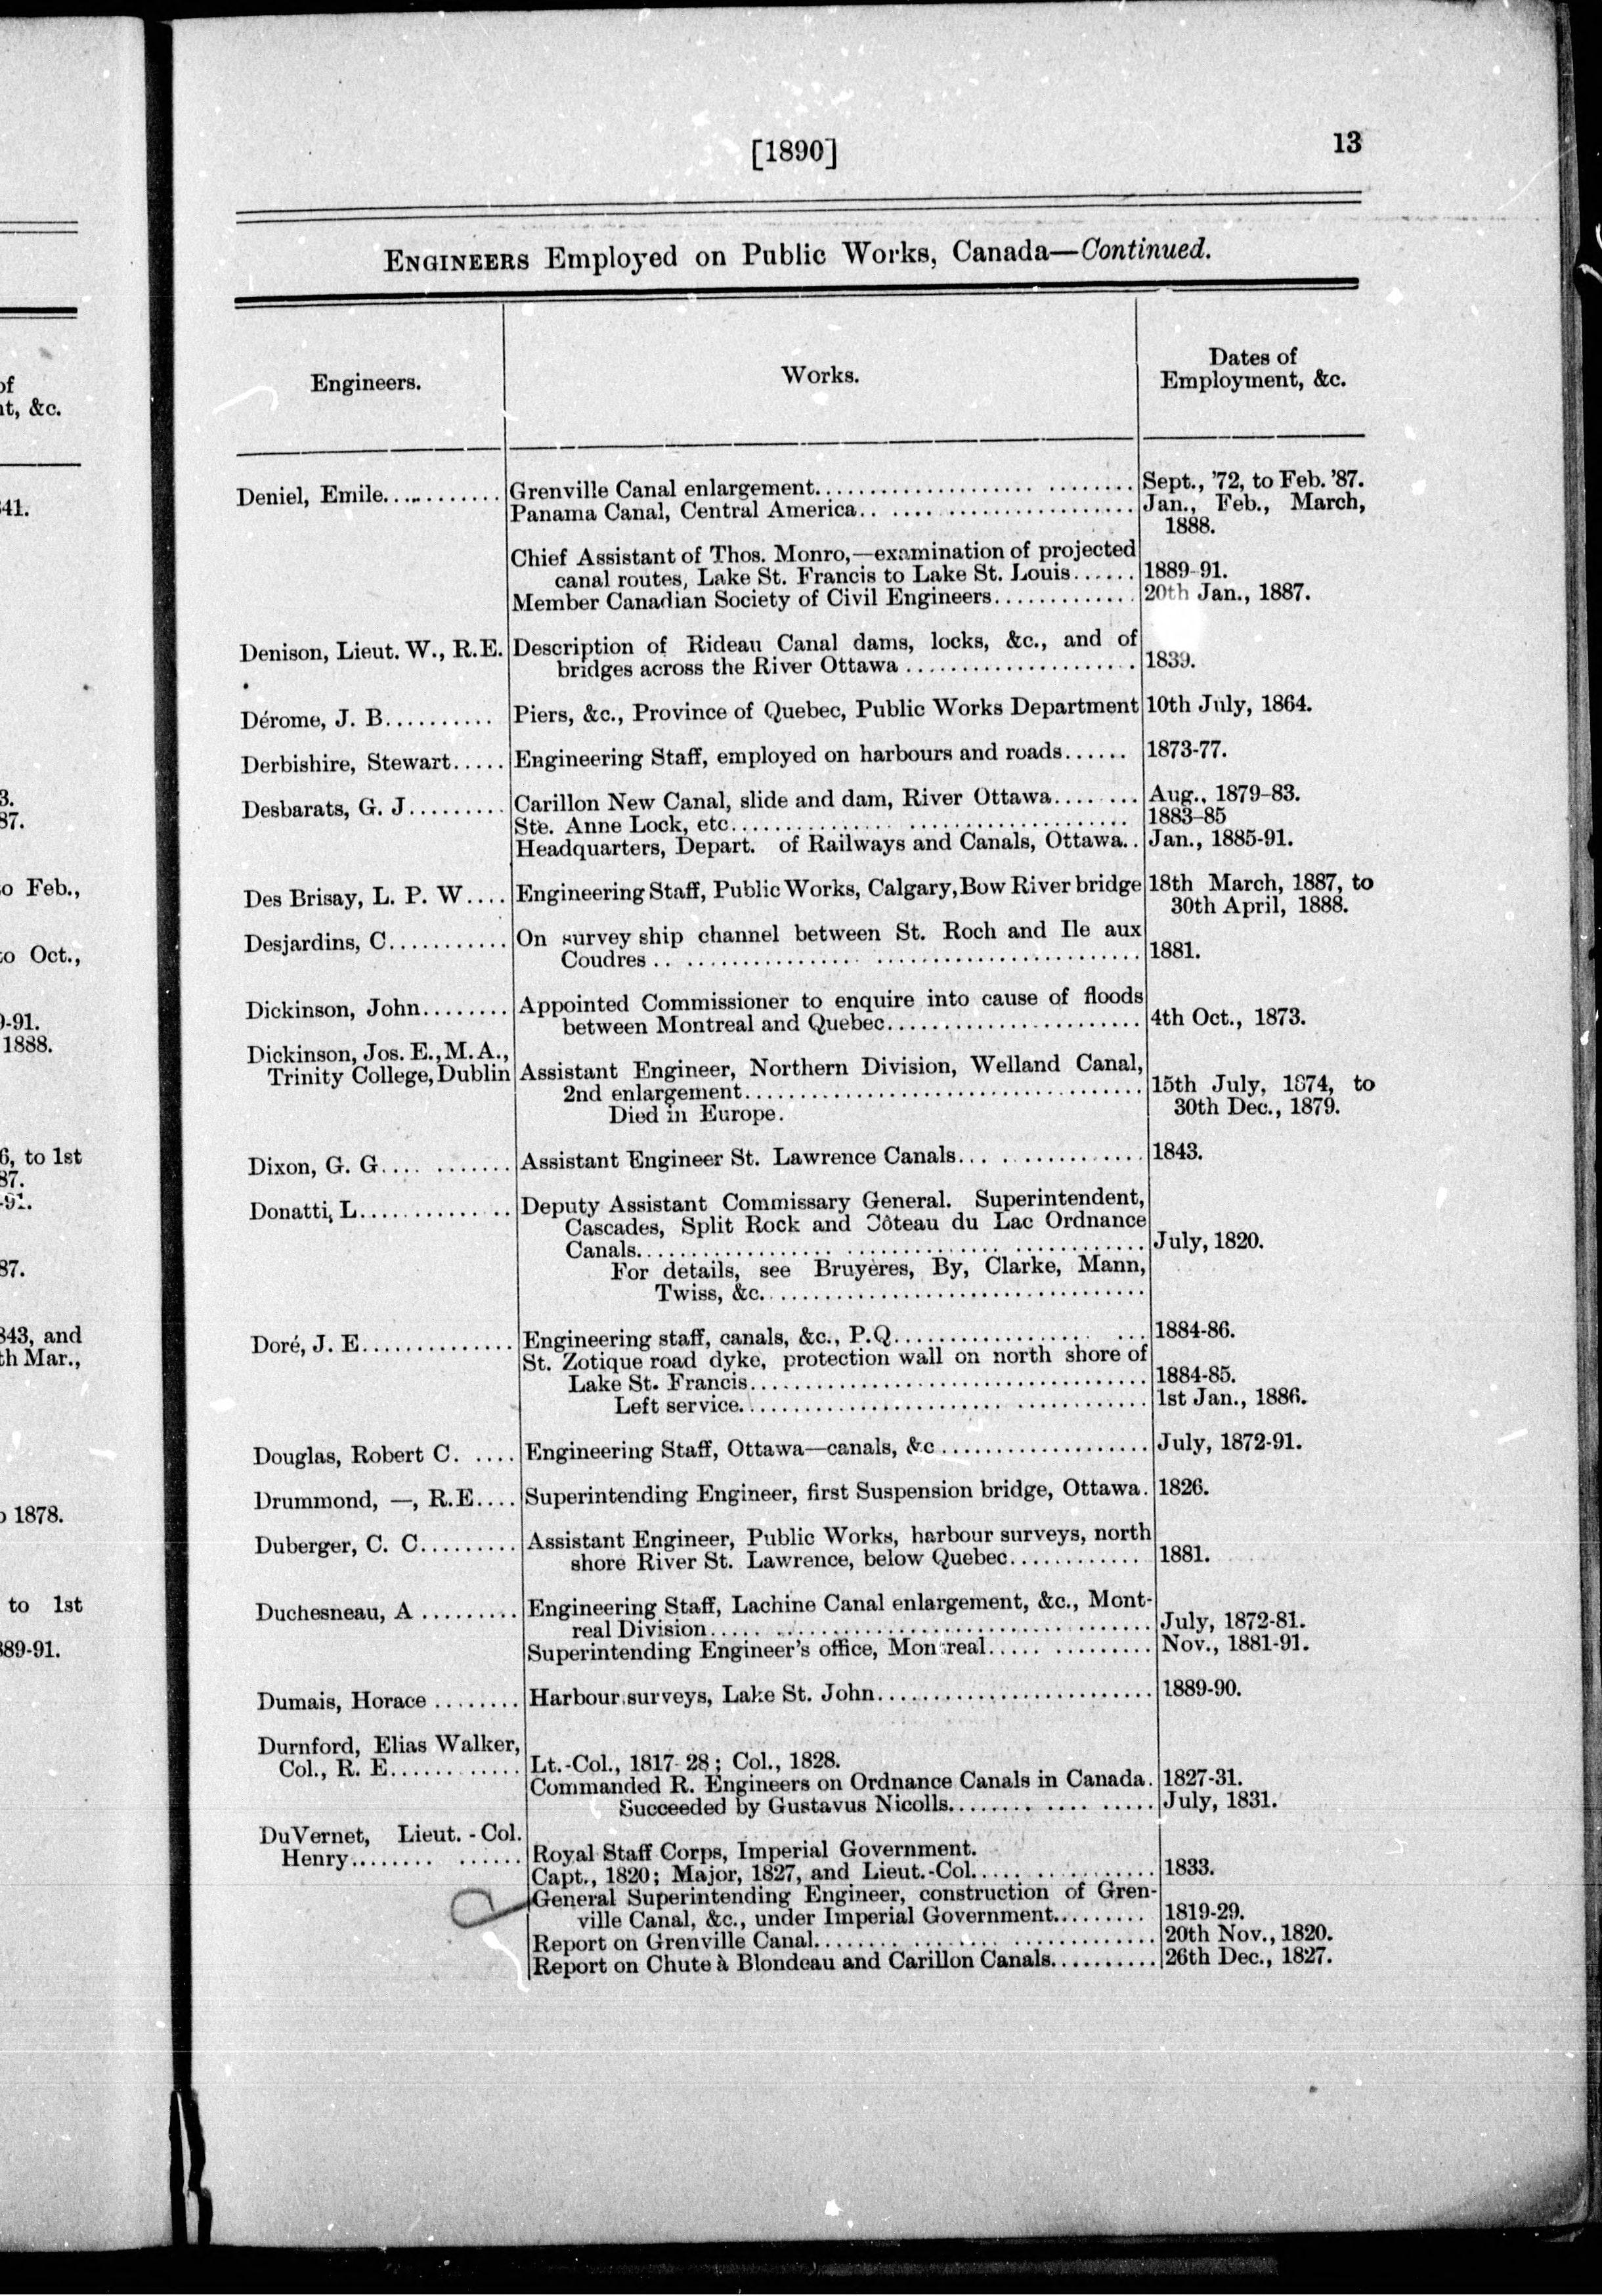 [1890]
13
ENGINEERS Employed on Public Works, Canada—Continued.
Engineers.
Works.
Dates of
Employment, &c.
Deniel, Emile............ Grenville Canal enlargement............................ Sept., '72, to Feb. '87.
Panama Canal, Central America........................ Jan., Feb., March,
1888.
Chief Assistant of Thos. Monro,—examination of projected
canal routes, Lake St. Francis to Lake St. Louis...... 1889-91.
Member Canadian Society of Civil Engineers............. 20th Jan., 1887.
Denison, Lieut. W., R.E. Description of Rideau Canal dams, locks, &c., and of
bridges across the River Ottawa..................... 1839.
Dérome, J. B.......... Piers, &c., Province of Quebec, Public Works Department 10th July, 1864.
Derbishire, Stewart..... Engineering Staff, employed on harbours and roads...... 1873-77.
Desbarats, G. J......... Carillon New Canal, slide and dam, River Ottawa........ Aug., 1879-83.
Ste. Anne Lock, etc.................................... 1883-85
Headquarters, Depart. of Railways and Canals, Ottawa.. Jan., 1885-91.
Des Brisay, L. P. W.... Engineering Staff, Public Works, Calgary, Bow River bridge 18th March, 1887, to
30th April, 1888.
Desjardins, C........... On survey ship channel between St. Roch and Ile aux
Coudres............................................ 1881.
Dickinson, John........ Appointed Commissioner to enquire into cause of floods
between Montreal and Quebec....................... 4th Oct., 1873.
Dickinson, Jos. E., M.A.,
Trinity College, Dublin Assistant Engineer, Northern Division, Welland Canal,
2nd enlargement.................................... 15th July, 1874, to
Died in Europe. 30th Dec., 1879.
Dixon, G. G............ Assistant Engineer St. Lawrence Canals................. 1843.
Donatti, L.............. Deputy Assistant Commissary General. Superintendent,
Cascades, Split Rock and Côteau du Lac Ordnance
Canals.............................................. July, 1820.
For details, see Bruyères, By, Clarke, Mann,
Twiss, &c...................................
Doré, J. E.............. Engineering staff, canals, &c., P.Q..................... 1884-86.
St. Zotique road dyke, protection wall on north shore of
Lake St. Francis.................................... 1884-85.
Left service..................................... 1st Jan., 1886.
Douglas, Robert C. .... Engineering Staff, Ottawa—canals, &c................... July, 1872-91.
Drummond, —, R.E.... Superintending Engineer, first Suspension bridge, Ottawa. 1826.
Duberger, C. C......... Assistant Engineer, Public Works, harbour surveys, north
shore River St. Lawrence, below Quebec............ 1881.
Duchesneau, A ......... Engineering Staff, Lachine Canal enlargement, &c., Mont-
real Division........................................ July, 1872-81.
Superintending Engineer's office, Montreal.............. Nov., 1881-91.
Dumais, Horace ........ Harbour surveys, Lake St. John......................... 1889-90.
Durnford, Elias Walker,
Col., R. E............ Lt.-Col., 1817-28; Col., 1828.
Commanded R. Engineers on Ordnance Canals in Canada. 1827-31.
Succeeded by Gustavus Nicolls................... July, 1831.
DuVernet, Lieut.-Col.
Henry.............. Royal Staff Corps, Imperial Government.
Capt., 1820; Major, 1827, and Lieut.-Col................ 1833.
General Superintending Engineer, construction of Gren-
ville Canal, &c., under Imperial Government......... 1819-29.
Report on Grenville Canal............................... 20th Nov., 1820.
Report on Chute à Blondeau and Carillon Canals.......... 26th Dec., 1827.